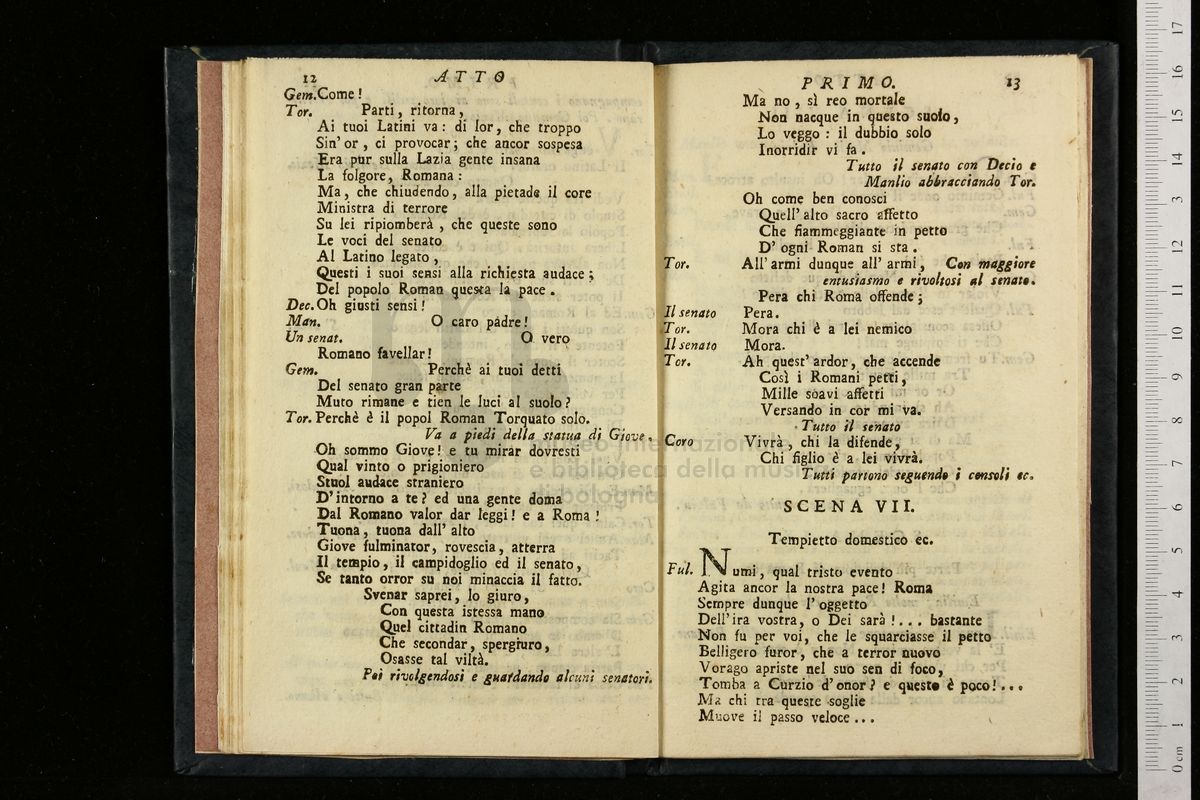 12 ATTO
Gem. Come!
Tor. Parti, ritorna,
Ai tuoi Latini va: di lor, che troppo
Sin' or, ci provocar; che ancor sospesa
Era pur sulla Lazia gente insana
La folgore, Romana:
Ma, che chiudendo, alla pietade il core
Ministra di terrore
Su lei ripiomberà, che queste sono
Le voci del senato
Al Latino legato,
Questi i suoi sensi alla richiesta audace;
Del popolo Roman questa la pace.
Dec. Oh giusti sensi!
Man. O caro padre!
Un senat. O vero
Romano favellar!
Gem. Perchè ai tuoi detti
Del senato gran parte
Muto rimane e tien le luci al suolo?
Tor. Perchè è il popol Roman Torquato solo.
Va a piedi della statua di Giove.
Oh sommo Giove! e tu mirar dovresti
Qual vinto o prigioniero
Stuol audace straniero
D'intorno a te? ed una gente doma
Dal Romano valor dar leggi! e a Roma!
Tuona, tuona dall' alto
Giove fulminator, rovescia, atterra
Il tempio, il campidoglio ed il senato,
Se tanto orror su noi minaccia il fatto.
Svenar saprei, lo giuro,
Con questa istessa mano
Quel cittadin Romano
Che secondar, spergiuro,
Osasse tal viltà.
Poi rivolgendosi e guardando alcuni senatori.
PRIMO. 13
Ma no, sì reo mortale
Non nacque in questo suolo,
Lo veggo: il dubbio solo
Inorridir vi fa.
Tutto il senato con Decio e
Manlio abbracciando Tor.
Oh come ben conosci
Quell' alto sacro affetto
Che fiammeggiante in petto
D' ogni Roman si sta.
Tor. All' armi dunque all' armi, Con maggiore
entusiasmo e rivoltosi al senato.
Pera chi Roma offende;
Il senato Pera.
Tor. Mora chi è a lei nemico
Il senato Mora.
Tor. Ah quest' ardor, che accende
Così i Romani petti,
Mille soavi affetti
Versando in cor mi va.
Tutto il senato
Coro Vivrà, chi la difende,
Chi figlio è a lei vivrà.
Tutti partono seguendo i consoli ec.
SCENA VII.
Tempietto domestico ec.
Ful. Numi, qual tristo evento
Agita ancor la nostra pace! Roma
Sempre dunque l' oggetto
Dell'ira vostra, o Dei sarà!... bastante
Non fu per voi, che le squarciasse il petto
Belligero furor, che a terror nuovo
Vorago apriste nel suo sen di foco,
Tomba a Curzio d'onor? e questo è poco!...
Ma chi tra queste soglie
Muove il passo veloce...
museo internazionale
e biblioteca della musica
di bologna
0 cm 1 2 3 4 5 6 7 8 9 10 11 12 13 14 15 16 17